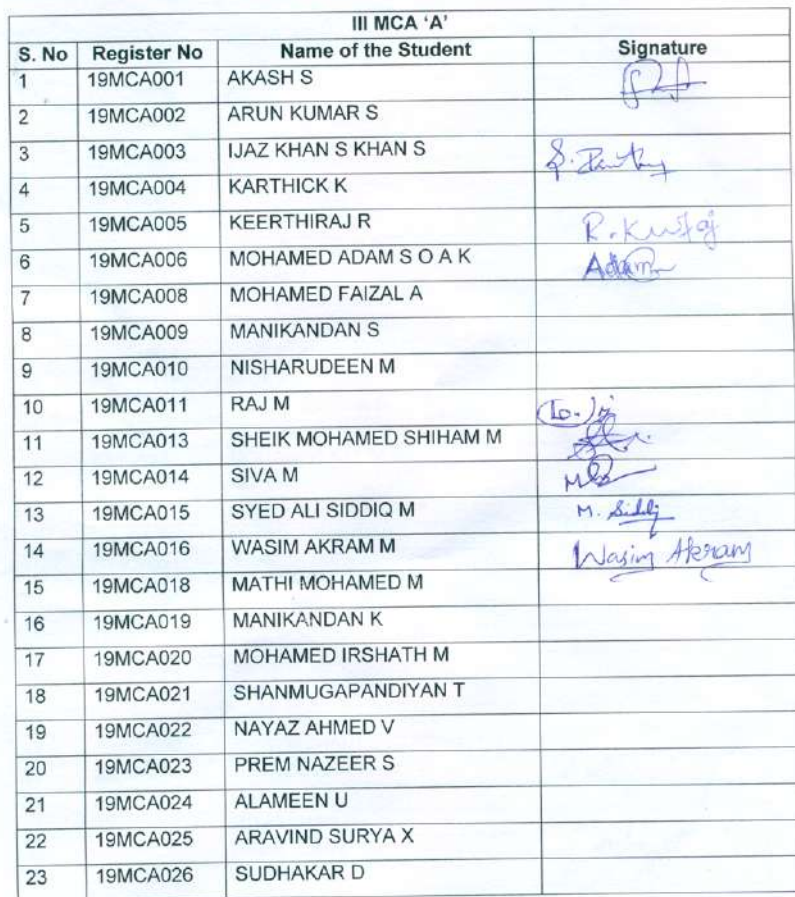 III MCA 'A'
S. No Register No Name of the Student Signature
1 19MCA001 AKASH S
2 19MCA002 ARUN KUMAR S
3 19MCA003 IJAZ KHAN S KHAN S
4 19MCA004 KARTHICK K
5 19MCA005 KEERTHIRAJ R
6 19MCA006 MOHAMED ADAM S O A K Adam
7 19MCA008 MOHAMED FAIZAL A
8 19MCA009 MANIKANDAN S
9 19MCA010 NISHARUDEEN M
10 19MCA011 RAJ M
11 19MCA013 SHEIK MOHAMED SHIHAM M
12 19MCA014 SIVA M
13 19MCA015 SYED ALI SIDDIQ M M. Siddiq
14 19MCA016 WASIM AKRAM M Wasim Akram
15 19MCA018 MATHI MOHAMED M
16 19MCA019 MANIKANDAN K
17 19MCA020 MOHAMED IRSHATH M
18 19MCA021 SHANMUGAPANDIYAN T
19 19MCA022 NAYAZ AHMED V
20 19MCA023 PREM NAZEER S
21 19MCA024 ALAMEEN U
22 19MCA025 ARAVIND SURYA X
23 19MCA026 SUDHAKAR D